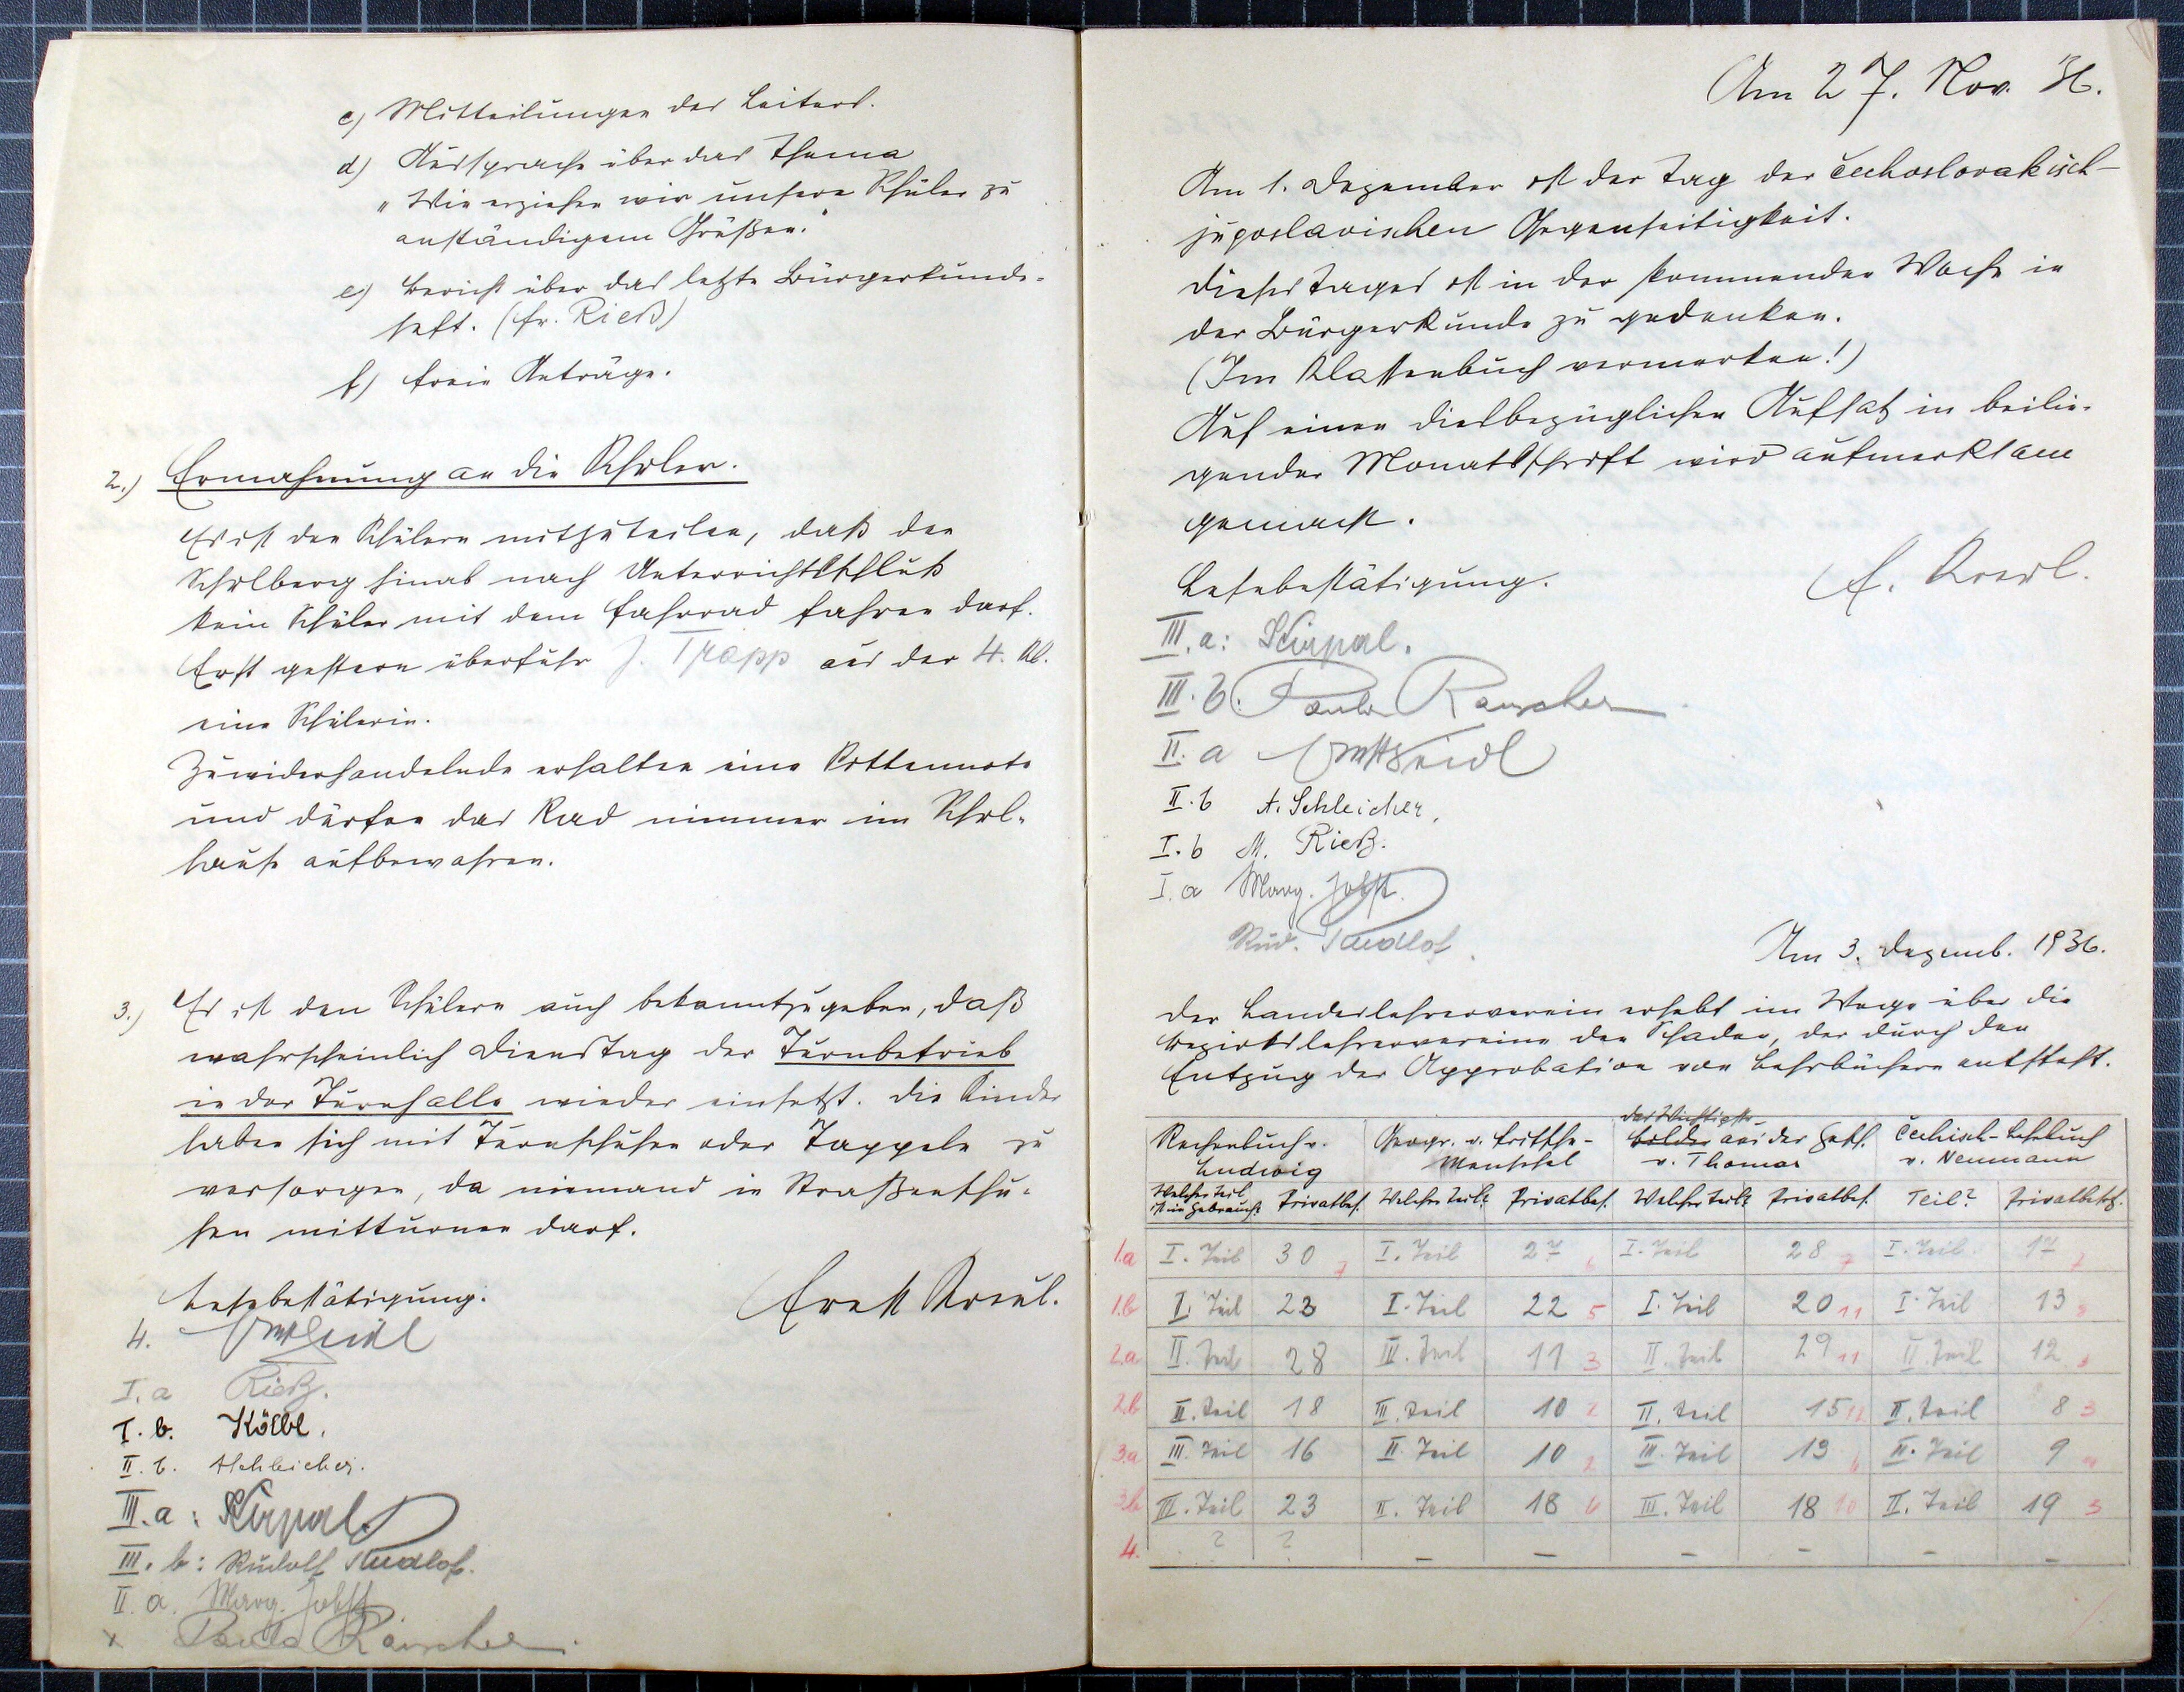 c) Mitteilungen des Leiters.
d) Aussprache über das Thema
„Wie erziehen wir unsere Schüler zu
anständigem Grüßen."
e) Bericht über das letzte Bürgerkunde-
heft. (Fr. Rieß)
f) Freie Anträge.
2.) Ermahnung an die Schüler.
Es ist den Schülern mitzuteilen, daß den
Schulberg hinab nach Unterrichtsschluß
kein Schüler mit dem Fahrrad fahren darf.
Erst gestern überfuhr J. Trapp aus der 4. Kl.
eine Schülerin.
Zuwiderhandelnde erhalten eine Sittennote
und dürfen das Rad nimmer im Schul-
hause aufbewahren.
3.) Es ist den Schülern auch bekanntzugeben, daß
wahrscheinlich Dienstag der Turnbetrieb
in der Turnhalle wieder einsetzt. Die Kinder
haben sich mit Turnschuhen oder Tappeln zu
versorgen, da niemand in Straßenschu-
hen mitturnen darf.
Lesebestätigung: Ernst Kreul.
4. Seidl
I. a Rieß.
I. b. Kölbl.
II. b. Schleicher.
III. a: Kirpal.
III. b: Rudolf Kudlof.
II. a. Marg. Jobst
x Paula Rauscher.
Am 27. Nov. 36.
Am 1. Dezember ist der Tag der čechoslovakisch-
jugoslavischen Gegenseitigkeit.
Dieses Tages ist in der kommenden Woche in
der Bürgerkunde zu gedenken.
(Im Klassenbuch vermerken!)
Auf einen diesbezüglichen Aufsatz in beilie-
gender Monatsschrift wird aufmerksam
gemacht.
Lesebestätigung. E. Kreul.
III. a: Kirpal.
III. b: Paula Rauscher
II. a Seidl
II. b A. Schleicher.
I. b M. Rieß.
I. a Marg. Jobst.
Rud. Kudlof.
Am 3. Dezemb. 1936.
Der Landeslehrerverein erhebt im Wege über die
Bezirkslehrervereine den Schaden, der durch den
Entzug der Approbation von Lehrbüchern entsteht.
Rechenbuch v. Ludwig Geogr. v. Fritsche-Menschel Das Wichtigste Bilder aus der Gesch. v. Thomas Čechisch-Lesebuch v. Neumann
Welcher Teil ist im Gebrauch? Privatbes. Welcher Teil? Privatbes. Welcher Teil? Privatbes. Teil? Privatbesitz.
1.a I. Teil 30 7 I. Teil 27 6 I. Teil 28 7 I. Teil 17 7
1.b I. Teil 23 I. Teil 22 5 I. Teil 20 11 I. Teil 13
2.a II. Teil 28 III. Teil 11 3 II. Teil 29 11 II. Teil 12
2.b II. Teil 18 III. Teil 10 2 II. Teil 15 12 II. Teil 8 3
3.a III. Teil 16 II. Teil 10 2 III. Teil 13 II. Teil 9
3.b III. Teil 23 II. Teil 18 6 III. Teil 18 10 II. Teil 19 5
4. ? ? – – – – – –